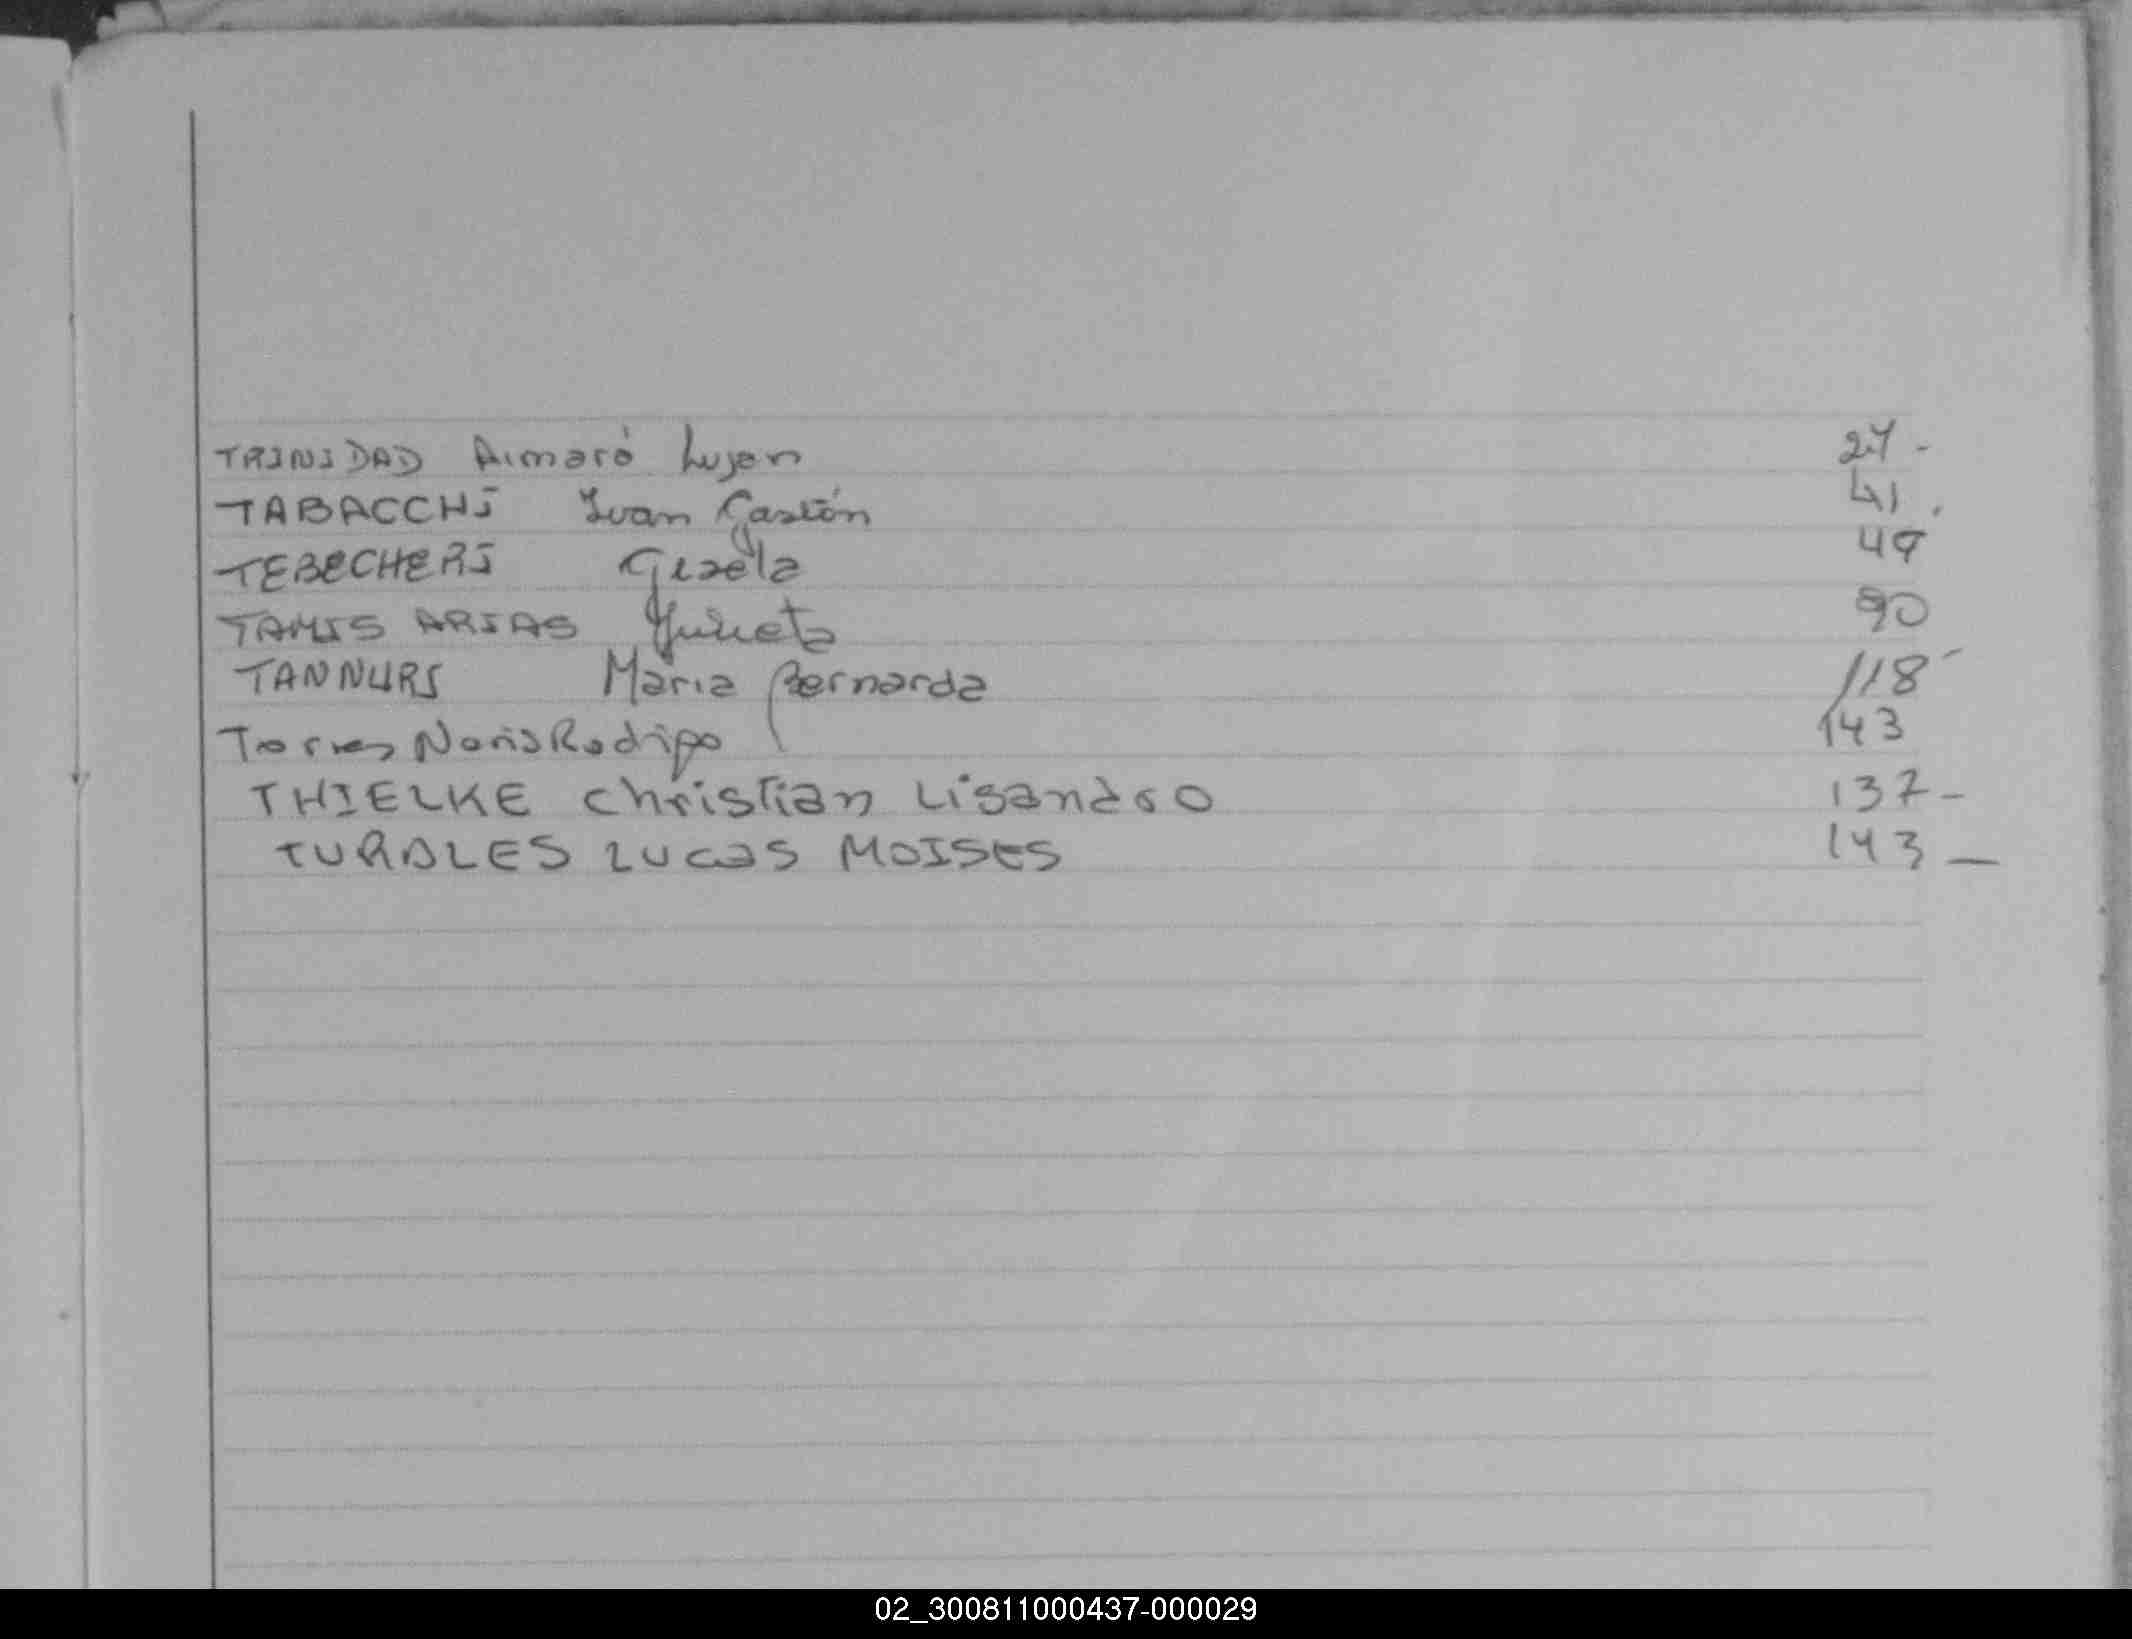 TRINIDAD Aimaró Lujan 27 -
TABACCHI Ivan Gastón 41 .
TEBECHERI Gisela 49
TAMIS ARIAS Julieta 90
TANNURI Maria Bernarda 118 -
Torres Noris Rodrigo 143
THIELKE Christian Lisandro 137 -
TURALES LUCAS MOISES 143 —
02_300811000437-000029